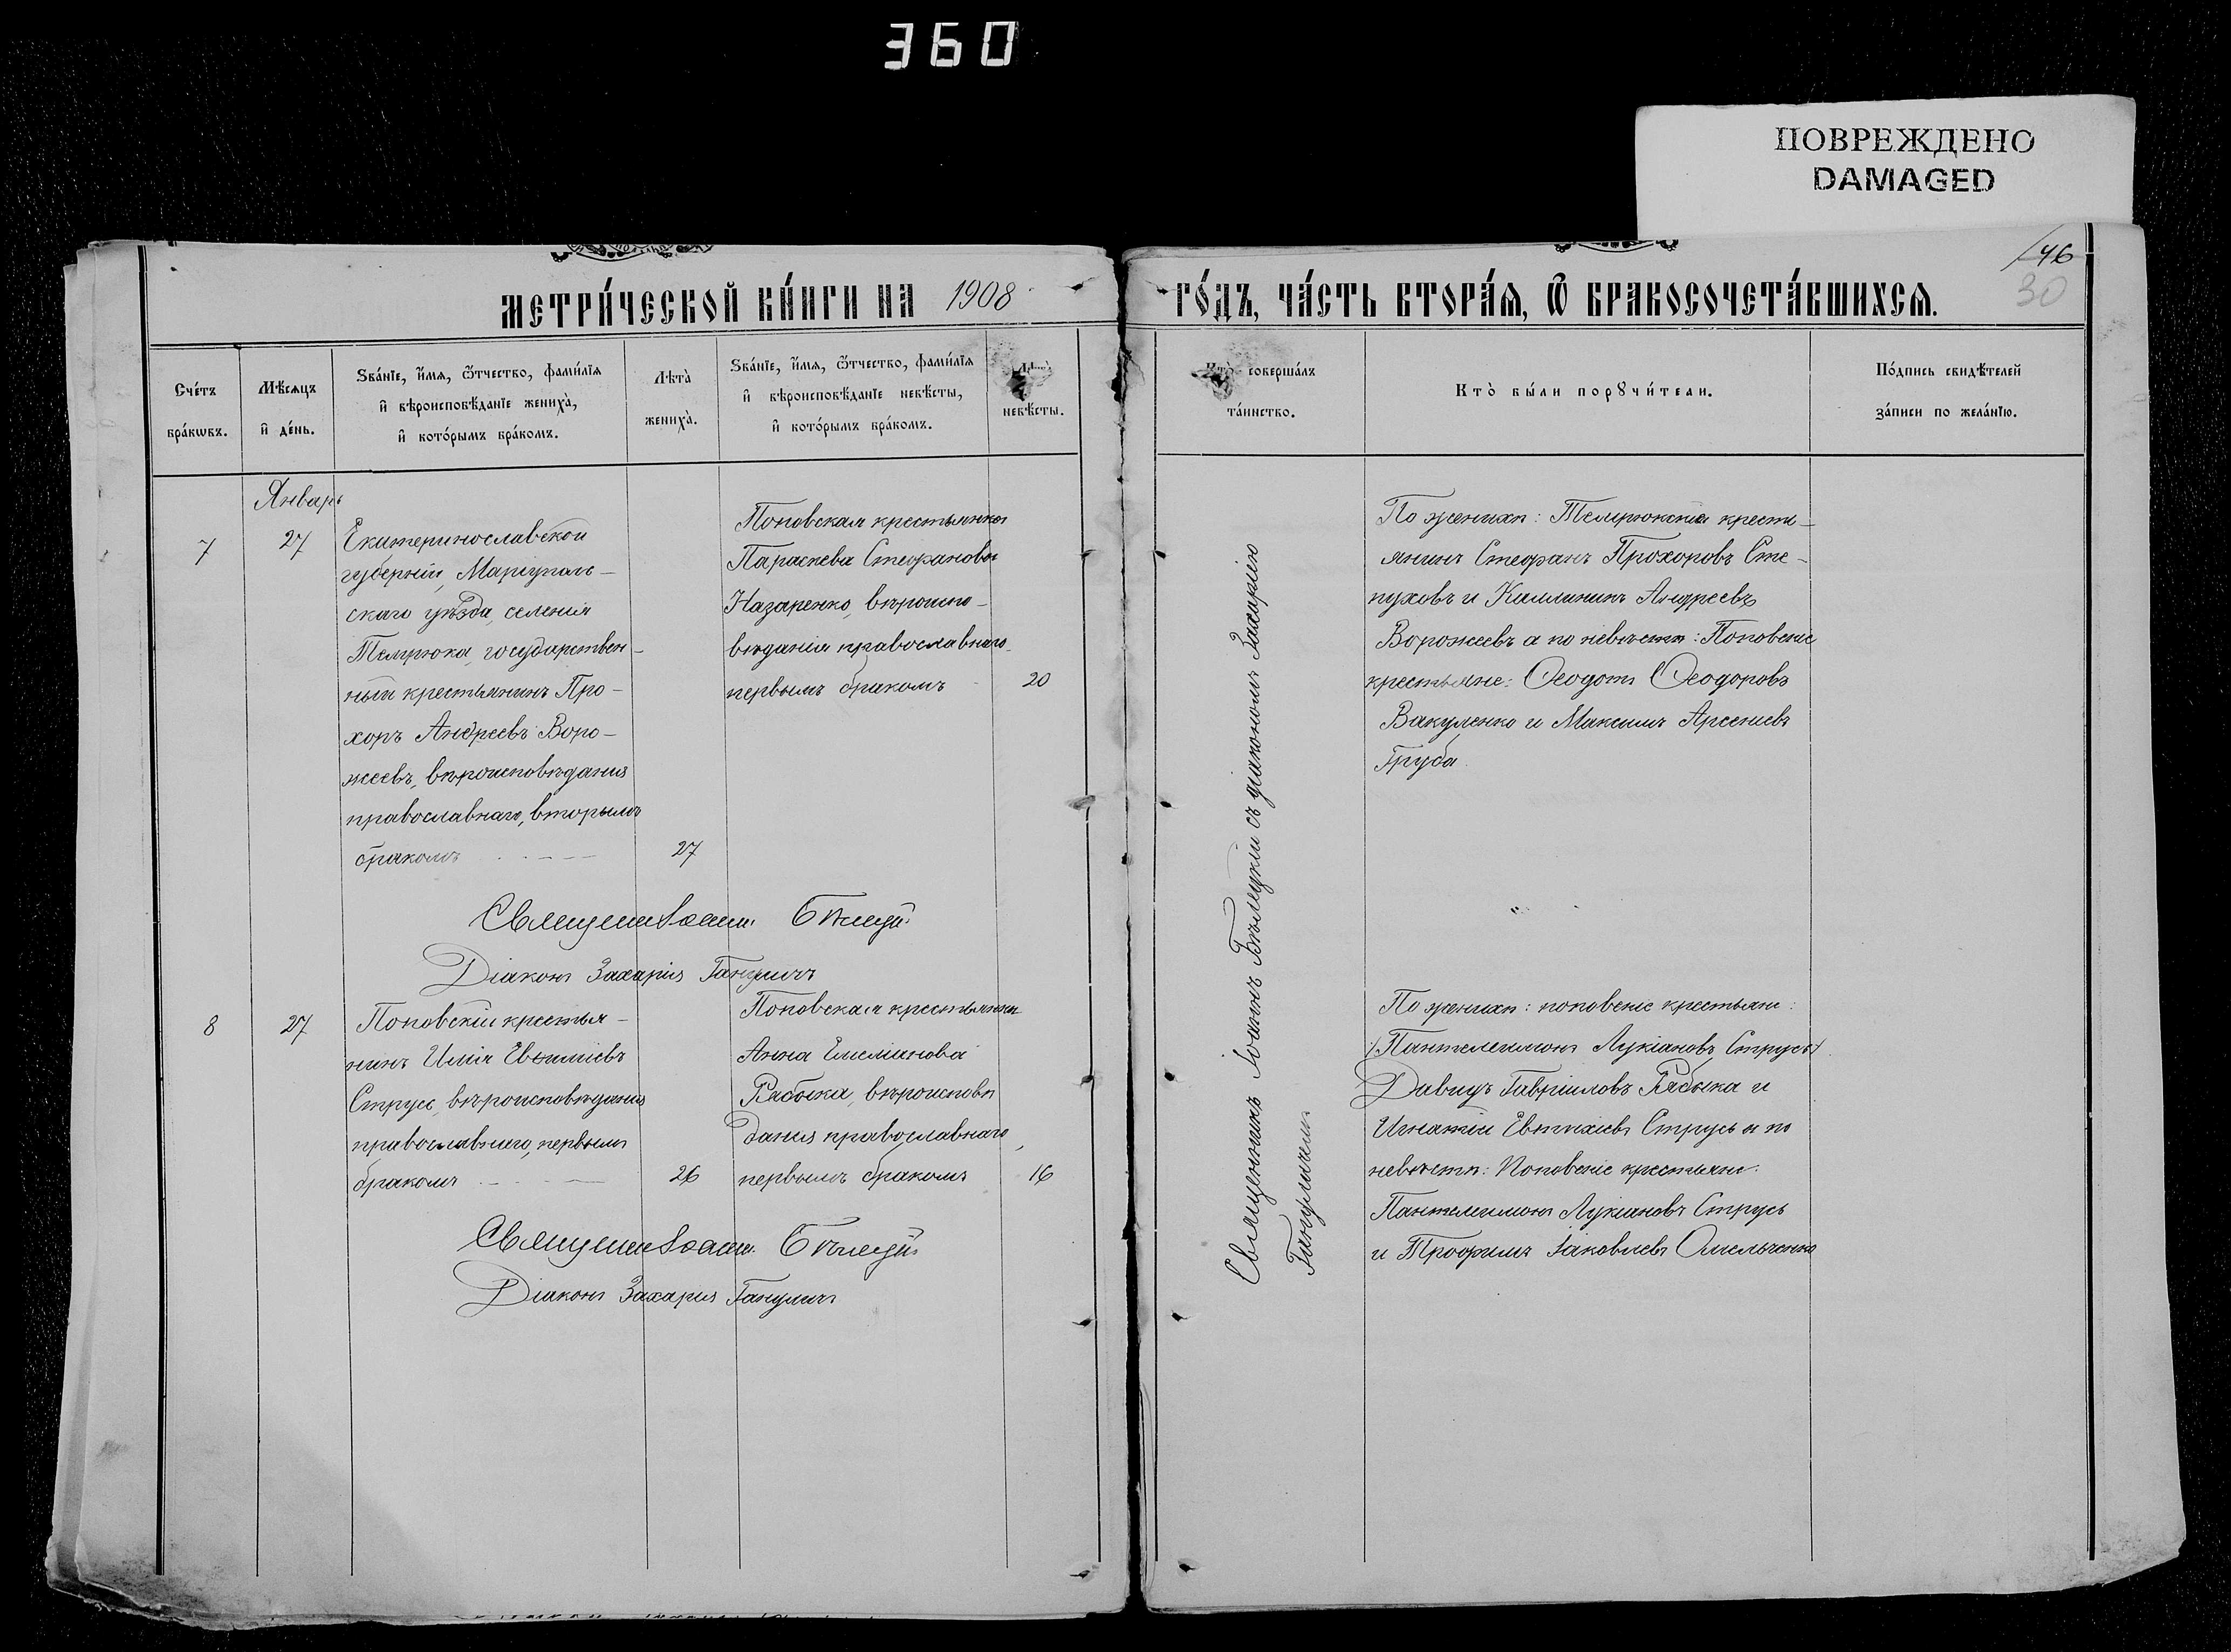 360
ПОВРЕЖДЕНО
DAMAGED
46
30
МЕТРИ́ЧЕСКОЙ КНИ́ГИ НА 1908
ГО́ДЪ, ЧА́СТЬ ВТОРА́Я, Ѿ БРАКОСОЧЕТА́ВШИХСЯ.
Сче́тъ бра́кѡвъ.
Мѣ́сяцъ и де́нь.
Ѕва́нїе, и́мя, ѻ́тчество, фами́лїя
и вѣроисповѣ́данїе жениха̀,
и кото́рымъ бра́комъ.
Лѣта̀ жениха̀.
Ѕва́нїе, и́мя, ѻ́тчество, фами́лїя
и вѣроисповѣ́данїе невѣ́сты,
и кото́рымъ бра́комъ.
невѣ́сты.
Кто̀ соверша́лъ
та́инство.
Кто̀ бы́ли порꙋчи́тели.
По́дпись свидѣ́телей
за́писи по жела́нїю.
Январь
7
27
Екатеринославской
губерніи, Маріуполь-
скаго уѣзда, селенія
Темрюка, государствен-
ный крестьянинъ Про-
хоръ Андреевъ Воро-
жеевъ, вѣроисповѣданія
православнаго, вторымъ
бракомъ
27
Поповская крестьянка
Параскева Стефанова
Назаренко, вѣроиспо-
вѣданія православнаго
первымъ бракомъ
20
Священникъ Іоаннъ Бѣлецкій съ діакономъ Захаріею
Гануличемъ
По женихѣ: Темрюкскіе кресть-
янинъ Стефанъ Прохоровъ Сте-
пуховъ и Каллиникъ Андреевъ
Ворожеевъ а по невѣстѣ: Поповскіе
крестьяне: Ѳеодотъ Ѳеодоровъ
Вакуленко и Максимъ Арсеніевъ
Груба
Священникъ Іоаннъ Бѣлецкій
Діаконъ Захарія Гануличъ
8
27
Поповскій крестья-
нинъ Илія Евѳиміевъ
Струсь, вѣроисповѣданія
православнаго, первымъ
бракомъ
26
Поповская крестьянка
Анна Емеліанова
Рябыка, вѣроисповѣ
данія православнаго,
первымъ бракомъ
16
По женихѣ: поповскіе крестьяне:
/Пантелеимонъ Лукіановъ Струсь/
Давидъ Гавріиловъ Рябыка и
Игнатій Евтихіевъ Струсь а по
невѣстѣ: Поповскіе крестьяне:
Пантелеимонъ Лукіановъ Струсь
и Трофимъ Іаковлевъ Омельченко
Священникъ Іоаннъ Бѣлецкій
Діаконъ Захарія Гануличъ